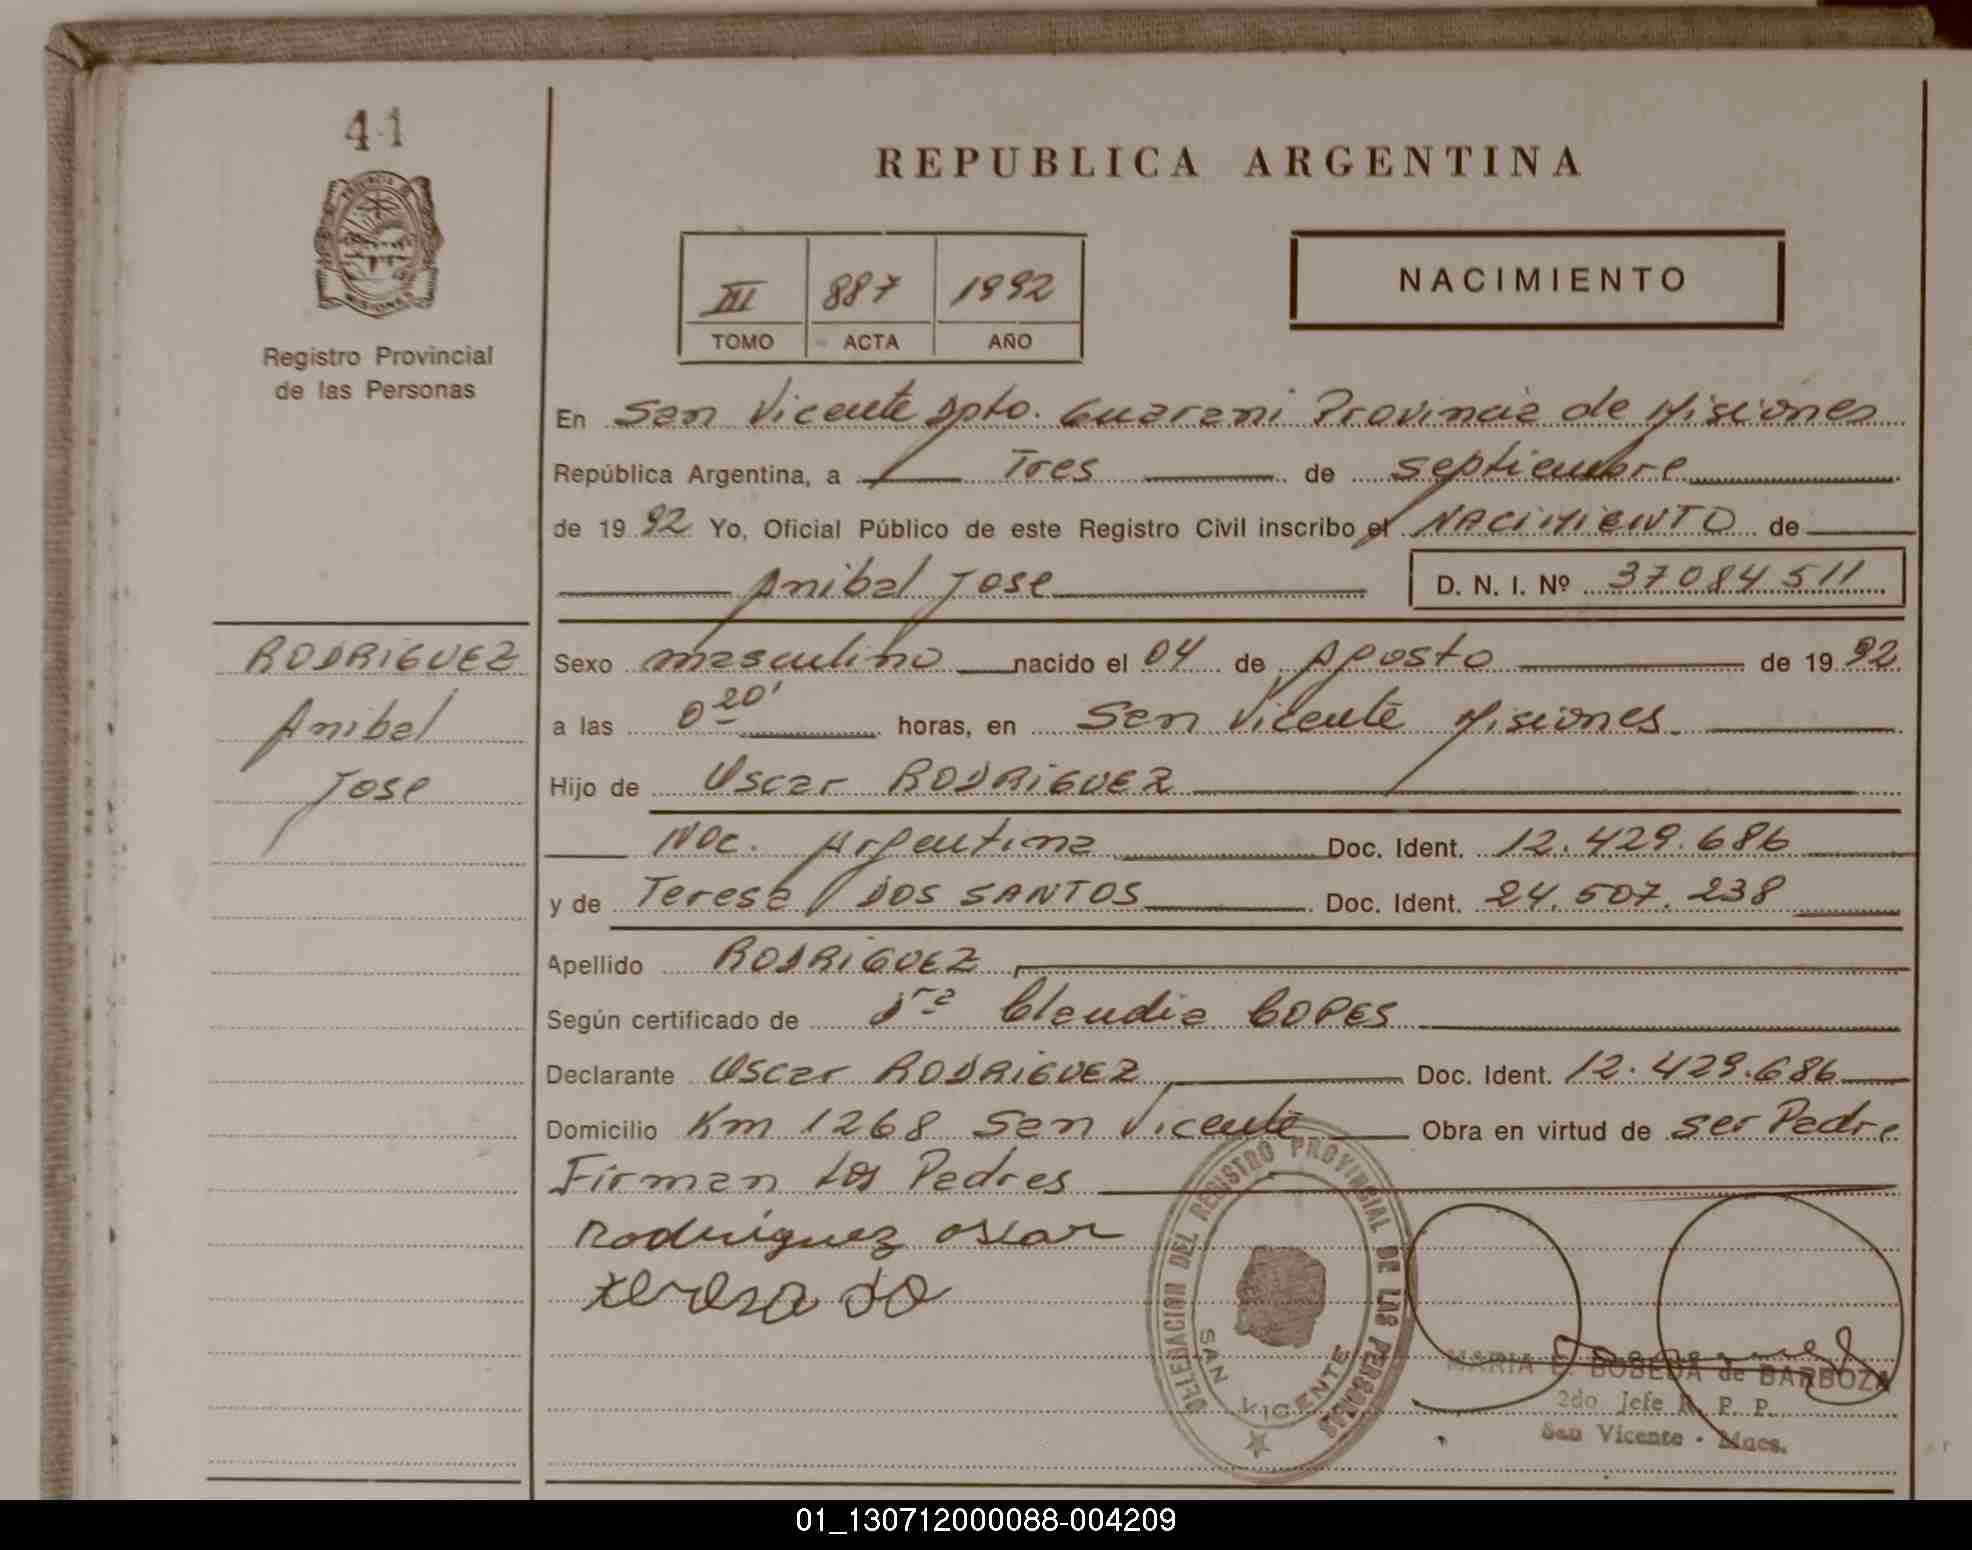 41
PROVINCIA DE
MISIONES
Registro Provincial
de las Personas
RODRIGUEZ
Anibal
Jose
REPUBLICA ARGENTINA
III 887 1992
TOMO ACTA AÑO
NACIMIENTO
En San Vicente Dpto. Guarani Provincia de Misiones
República Argentina, a Tres de septiembre
de 19 92 Yo, Oficial Público de este Registro Civil inscribo el NACIMIENTO de
Anibal Jose D. N. I. Nº 37084511
Sexo masculino nacido el 04 de Agosto de 19 92
a las 0 20' horas, en San Vicente Misiones.
Hijo de Oscar RODRIGUEZ
Nac. Argentina Doc. Ident. 12.429.686
y de Teresa DOS SANTOS Doc. Ident. 24.507.238
Apellido RODRIGUEZ
Según certificado de Dra Claudia COPES
Declarante Oscar RODRIGUEZ Doc. Ident. 12.429.686
Domicilio Km 1268 San Vicente Obra en virtud de ser Padre
Firman los Padres
Rodriguez oscar
teresa do
DELEGACION DEL REGISTRO PROVINCIAL DE LAS PERSONAS
SAN VICENTE
MARIA E. BOBEDA de BARBOZA
2do Jefe R. P. P.
San Vicente - Mnes.
01_130712000088-004209